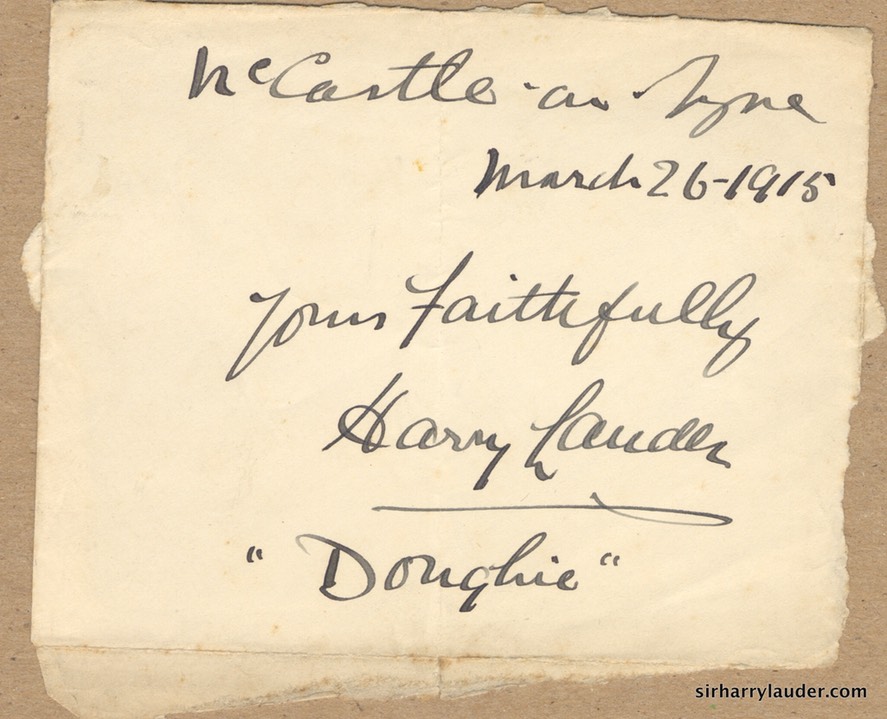 NcCastle-on-Tyne
March 26-1915
Yours Faithfully
Harry Lauder
"Doughie"
sirharrylauder.com